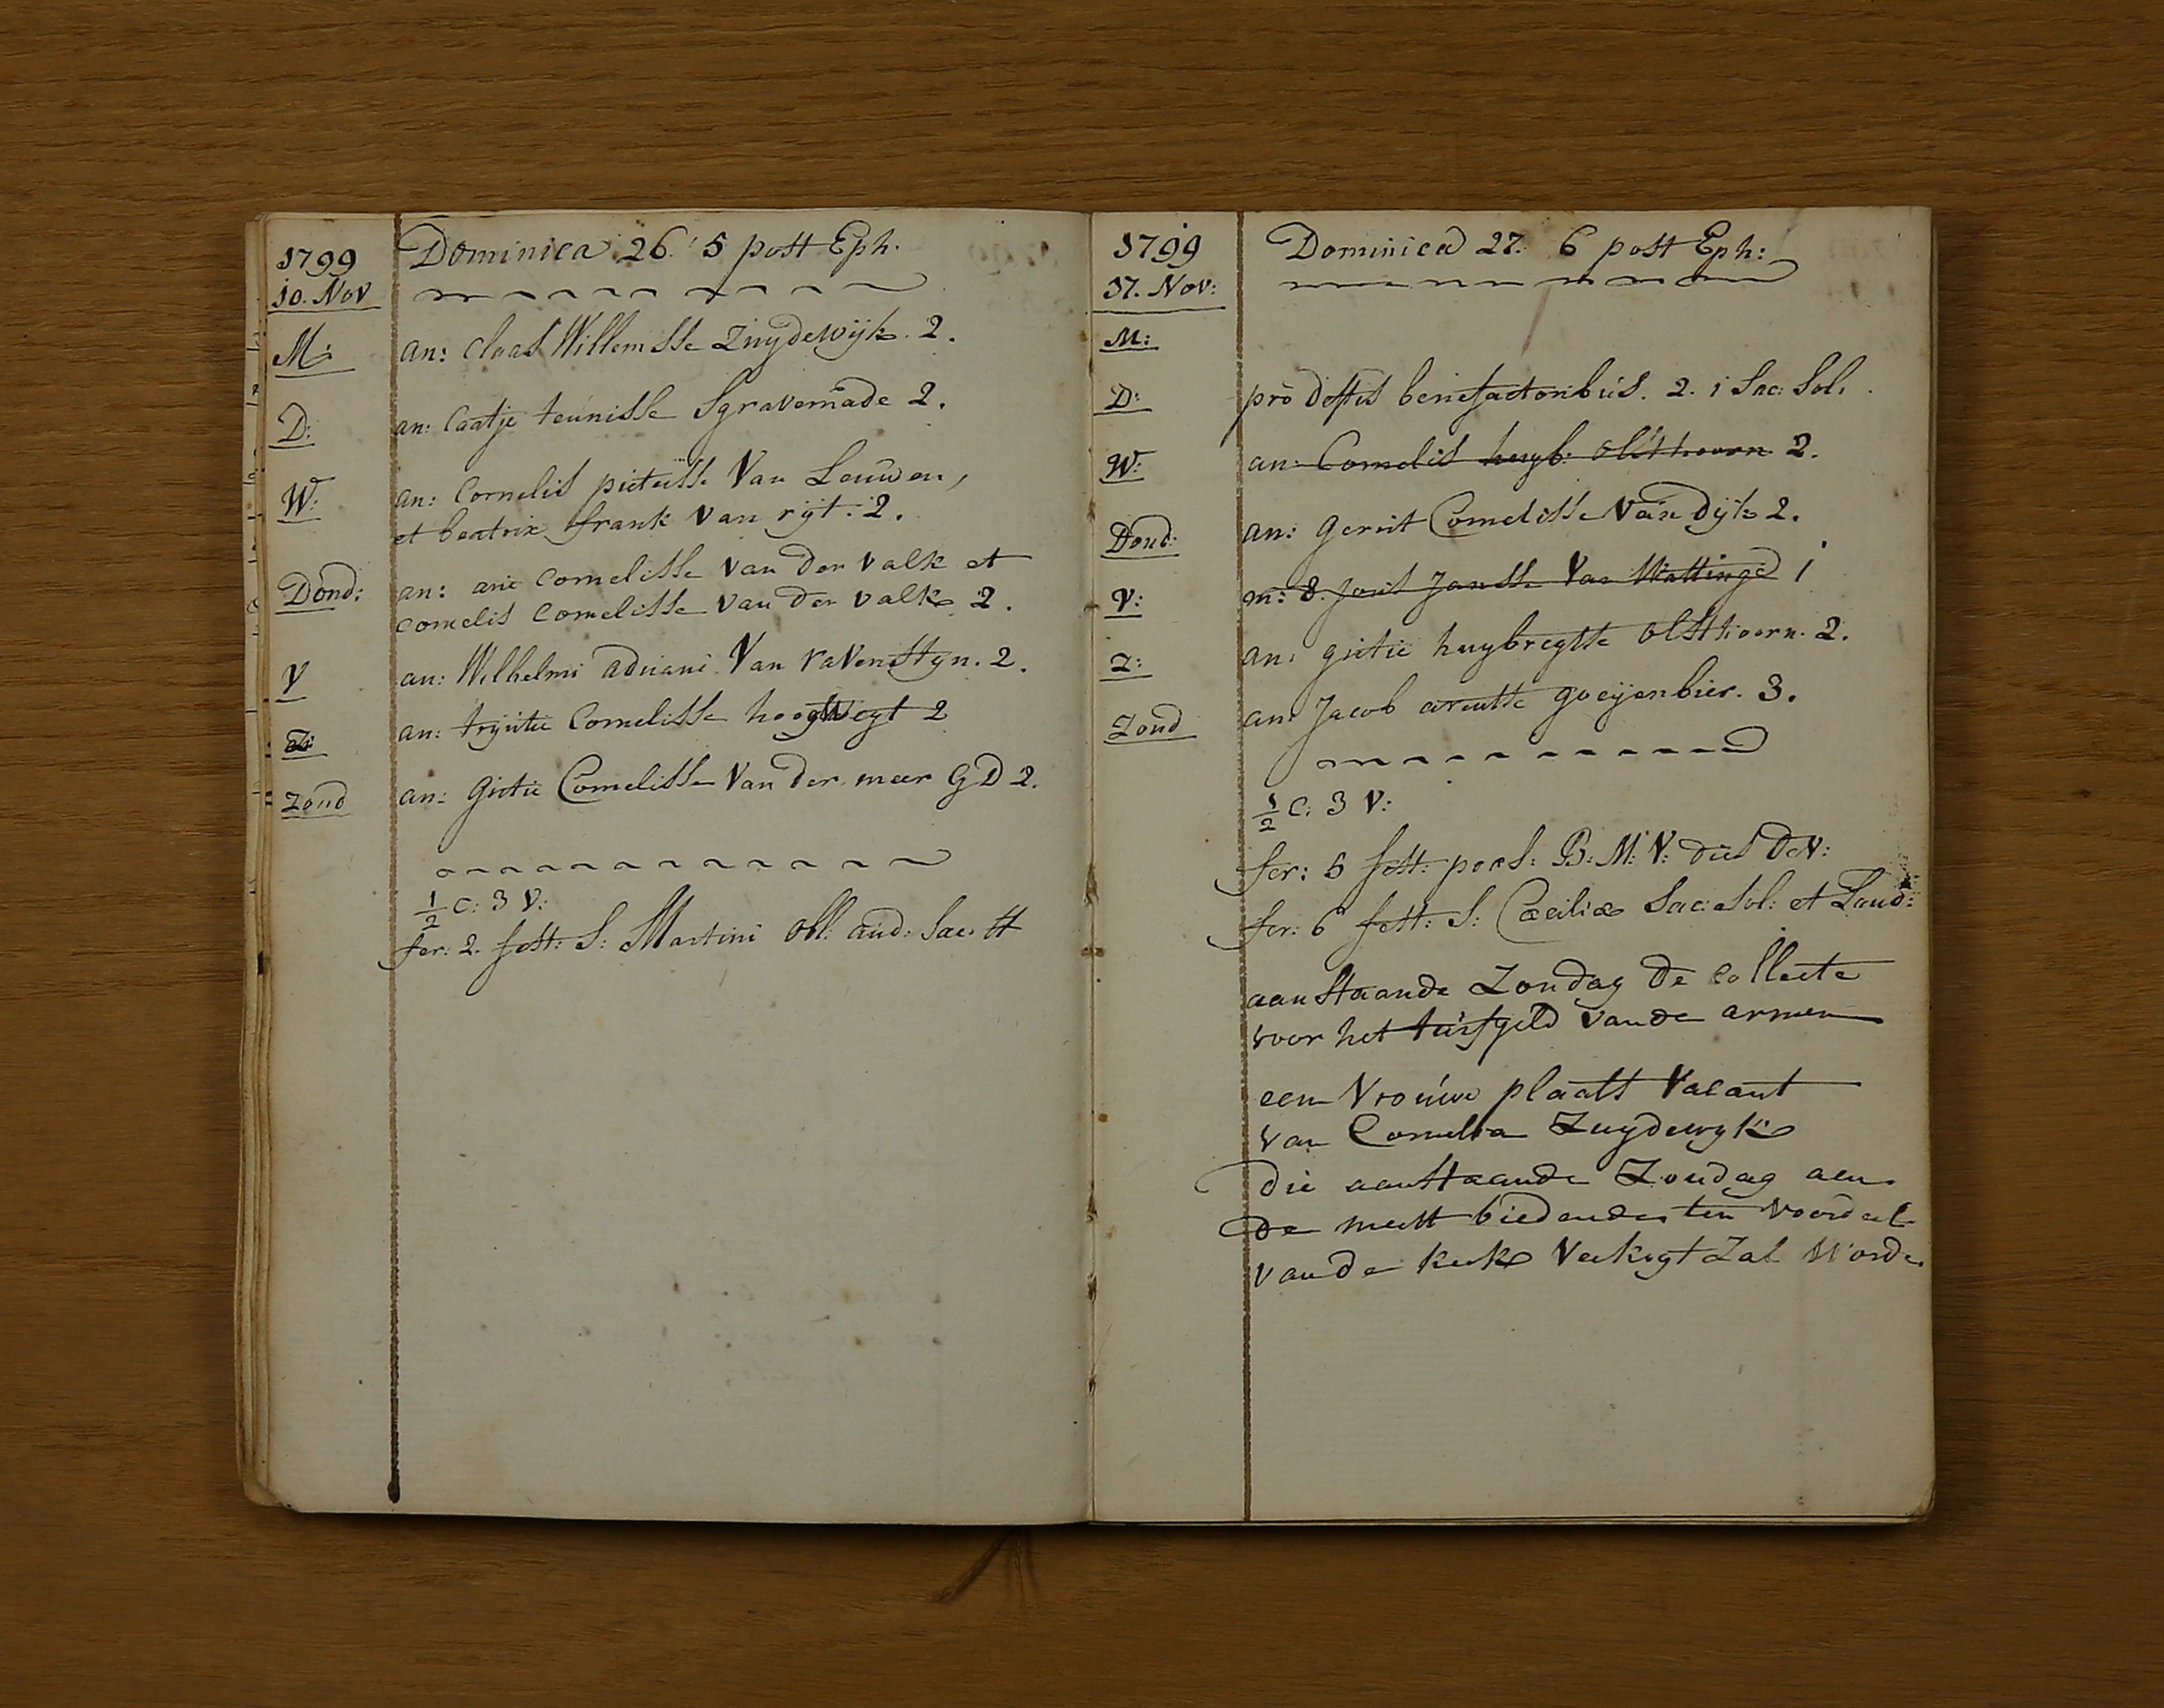 1799 Dominica 26. 5 post Eph.
10. Nov
M: an: Claas Willemsse Zuydewijk. 2.
D: an: Caatje teunisse Sgravemade 2.
W: an: Cornelis pieterss. Van Leuwen,
et beatrix frank van rijt. 2.
Dond: an: arie cornelisse van der valk et
cornelis cornelisse van der valk 2.
V an: Wilhelmi adriani Van ravenstyn. 2.
Z: an: trijntie Cornelisse hoogwegt 2
Zond an: Grietie Cornelisse Van der meer GD 2.
1/2 C: 3 V:
fer: 2. fest: S: Martini obl: aud: Sac: tt
1799 Dominica 27. 6 post Eph:
17. Nov:
M:
D: pro deftis benefactoribus. 2. 1 Sac: Sol.
W: an: Cornelis huyb: olsthoorn 2.
Dond: an: gerrit Cornelisse Van Dijk 2.
V: m: 8. Joris Jansse Van Wattinge 1
Z: an: grietie huybregtse olsthoorn. 2.
Zond an: Jacob arentse goeijenbier. 3.
1/2 C: 3 V:
fer: 5 fest: poes: B: M: V: dies Dev:
fer: 6 fest: S: Cæciliæ Sac: Sol: et Laud:
aanstaande Zondag de Collecte
voor het turfgeld vande armen
een Vrouwe plaats Vacant
van Cornelia Zuydewyk
die aanstaande Zondag aen
de meest biedende ten voordeel
vande kerke Verkogt Zal Worde